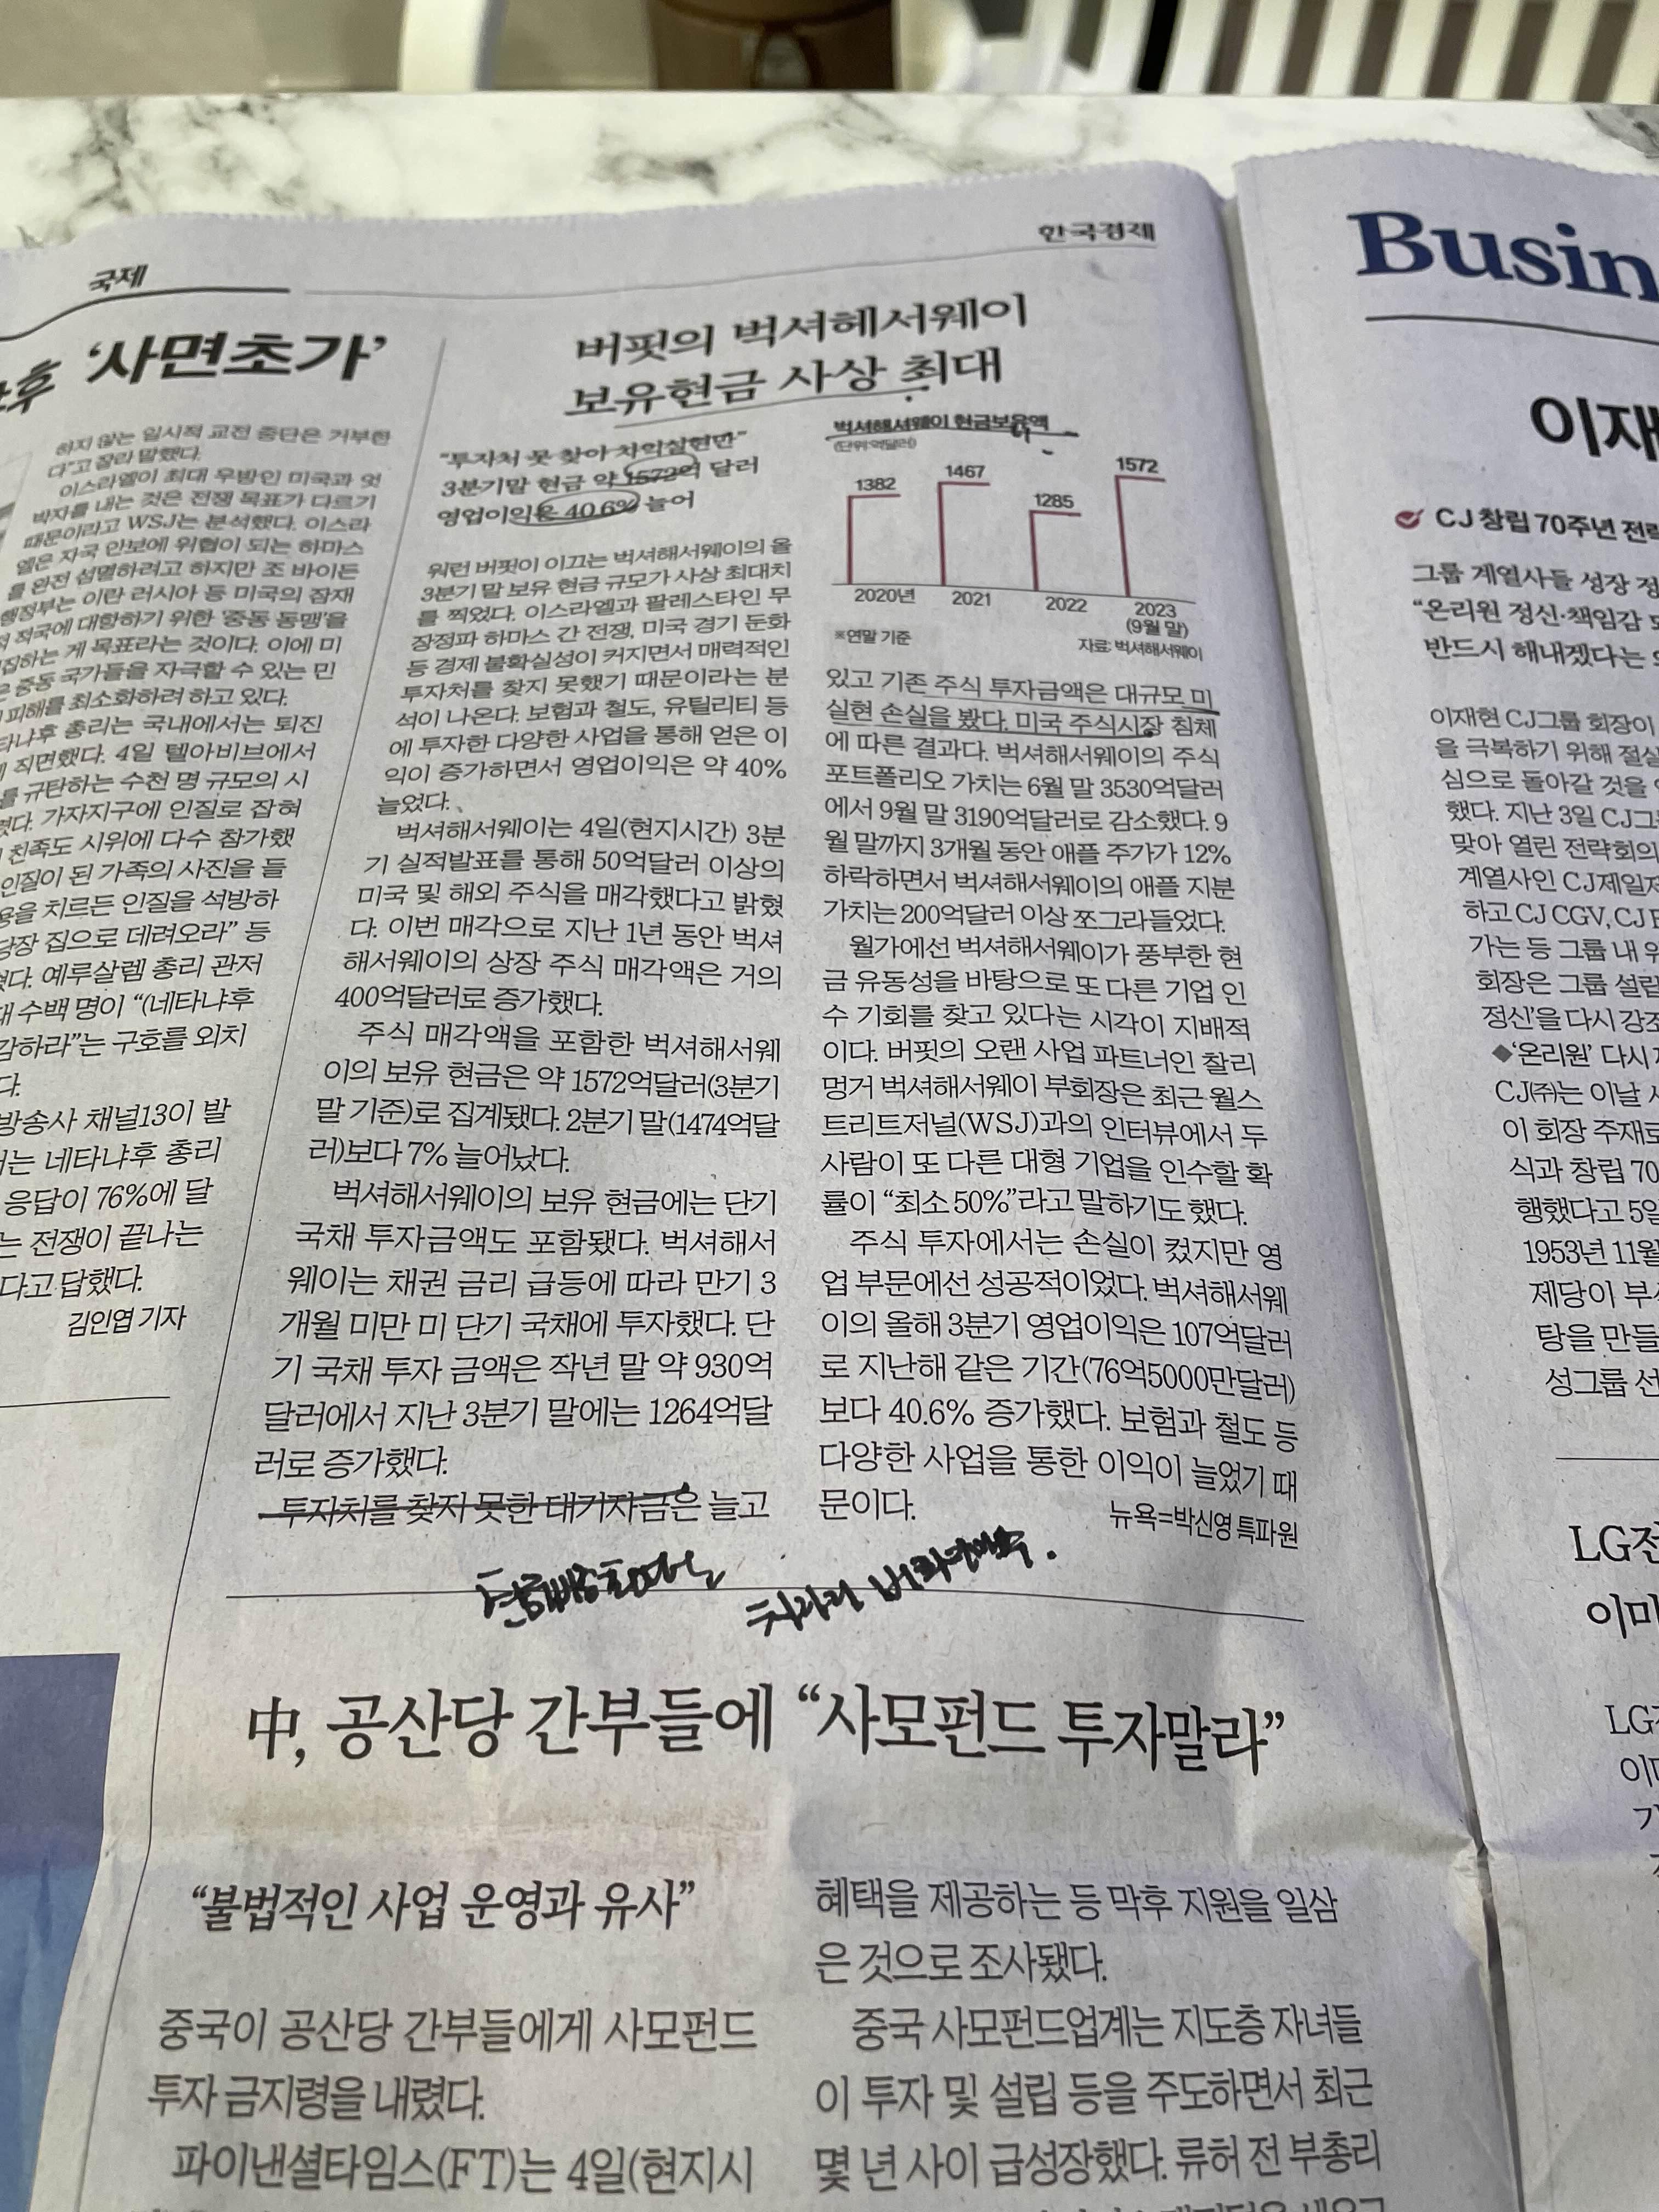 국제
한국경제
‘사면초가’
하지 않는 일시적 교전 중단은 거부한
다”고 잘라 말했다.
이스라엘이 최대 우방인 미국과 엇
박자를 내는 것은 전쟁 목표가 다르기
때문이라고 WSJ는 분석했다. 이스라
엘은 자국 안보에 위협이 되는 하마스
를 완전 섬멸하려고 하지만 조 바이든
행정부는 이란 러시아 등 미국의 잠재
적국에 대항하기 위한 ‘중동 동맹’을
하는 게 목표라는 것이다. 이에 미
중동 국가들을 자극할 수 있는 민
피해를 최소화하려 하고 있다.
총리는 국내에서는 퇴진
직면했다. 4일 텔아비브에서
를 규탄하는 수천 명 규모의 시
가자지구에 인질로 잡혀
친족도 시위에 다수 참가했
인질이 된 가족의 사진을 들
치르든 인질을 석방하
당장 집으로 데려오라” 등
예루살렘 총리 관저
수백 명이 “(네타냐후
감하라”는 구호를 외치
다.
방송사 채널13이 발
네타냐후 총리
응답이 76%에 달
는 전쟁이 끝나는
다고 답했다.
김인엽 기자
버핏의 벅셔해서웨이
보유현금 사상 최대
“투자처 못 찾아 차익실현만”
3분기말 현금 약 1572억 달러
영업이익은 40.6% 늘어
워런 버핏이 이끄는 벅셔해서웨이의 올
3분기 말 보유 현금 규모가 사상 최대치
를 찍었다. 이스라엘과 팔레스타인 무
장정파 하마스 간 전쟁, 미국 경기 둔화
등 경제 불확실성이 커지면서 매력적인
투자처를 찾지 못했기 때문이라는 분
석이 나온다. 보험과 철도, 유틸리티 등
에 투자한 다양한 사업을 통해 얻은 이
익이 증가하면서 영업이익은 약 40%
늘었다.
벅셔해서웨이는 4일(현지시간) 3분
기 실적발표를 통해 50억달러 이상의
미국 및 해외 주식을 매각했다고 밝혔
다. 이번 매각으로 지난 1년 동안 벅셔
해서웨이의 상장 주식 매각액은 거의
400억달러로 증가했다.
주식 매각액을 포함한 벅셔해서웨
이의 보유 현금은 약 1572억달러(3분기
말 기준)로 집계됐다. 2분기 말(1474억달
러)보다 7% 늘어났다.
벅셔해서웨이의 보유 현금에는 단기
국채 투자금액도 포함됐다. 벅셔해서
웨이는 채권 금리 급등에 따라 만기 3
개월 미만 미 단기 국채에 투자했다. 단
기 국채 투자 금액은 작년 말 약 930억
달러에서 지난 3분기 말에는 1264억달
러로 증가했다.
투자처를 찾지 못한 대기자금은 늘고
벅셔해서웨이 현금보유액
(단위:억달러)
1382
1467
1285
1572
2020년
2021
2022
2023
(9월 말)
※연말 기준
자료:벅셔해서웨이
있고 기존 주식 투자금액은 대규모 미
실현 손실을 봤다. 미국 주식시장 침체
에 따른 결과다. 벅셔해서웨이의 주식
포트폴리오 가치는 6월 말 3530억달러
에서 9월 말 3190억달러로 감소했다. 9
월 말까지 3개월 동안 애플 주가가 12%
하락하면서 벅셔해서웨이의 애플 지분
가치는 200억달러 이상 쪼그라들었다.
월가에선 벅셔해서웨이가 풍부한 현
금 유동성을 바탕으로 또 다른 기업 인
수 기회를 찾고 있다는 시각이 지배적
이다. 버핏의 오랜 사업 파트너인 찰리
멍거 벅셔해서웨이 부회장은 최근 월스
트리트저널(WSJ)과의 인터뷰에서 두
사람이 또 다른 대형 기업을 인수할 확
률이 “최소 50%”라고 말하기도 했다.
주식 투자에서는 손실이 컸지만 영
업 부문에선 성공적이었다. 벅셔해서웨
이의 올해 3분기 영업이익은 107억달러
로 지난해 같은 기간(76억5000만달러)
보다 40.6% 증가했다. 보험과 철도 등
다양한 사업을 통한 이익이 늘었기 때
문이다.
뉴욕=박신영 특파원
中, 공산당 간부들에 “사모펀드 투자말라”
“불법적인 사업 운영과 유사”
중국이 공산당 간부들에게 사모펀드
투자 금지령을 내렸다.
파이낸셜타임스(FT)는 4일(현지시
혜택을 제공하는 등 막후 지원을 일삼
은 것으로 조사됐다.
중국 사모펀드업계는 지도층 자녀들
이 투자 및 설립 등을 주도하면서 최근
몇 년 사이 급성장했다. 류허 전 부총리
Busin
이재
CJ 창립 70주년 전략
그룹 계열사들 성장 정
“온리원 정신·책임감
반드시 해내겠다는
이재현 CJ그룹 회장이
을 극복하기 위해 절실
심으로 돌아갈 것을
했다. 지난 3일 CJ그
맞아 열린 전략회의
계열사인 CJ제일제
하고 CJ CGV, CJ
가는 등 그룹 내 위
회장은 그룹 설립
정신’을 다시 강조
◆‘온리원’ 다시
CJ㈜는 이날
이 회장 주재로
식과 창립 70
행했다고 5일
1953년 11월
제당이 부
탕을 만들
성그룹 선
LG전
이미
LG